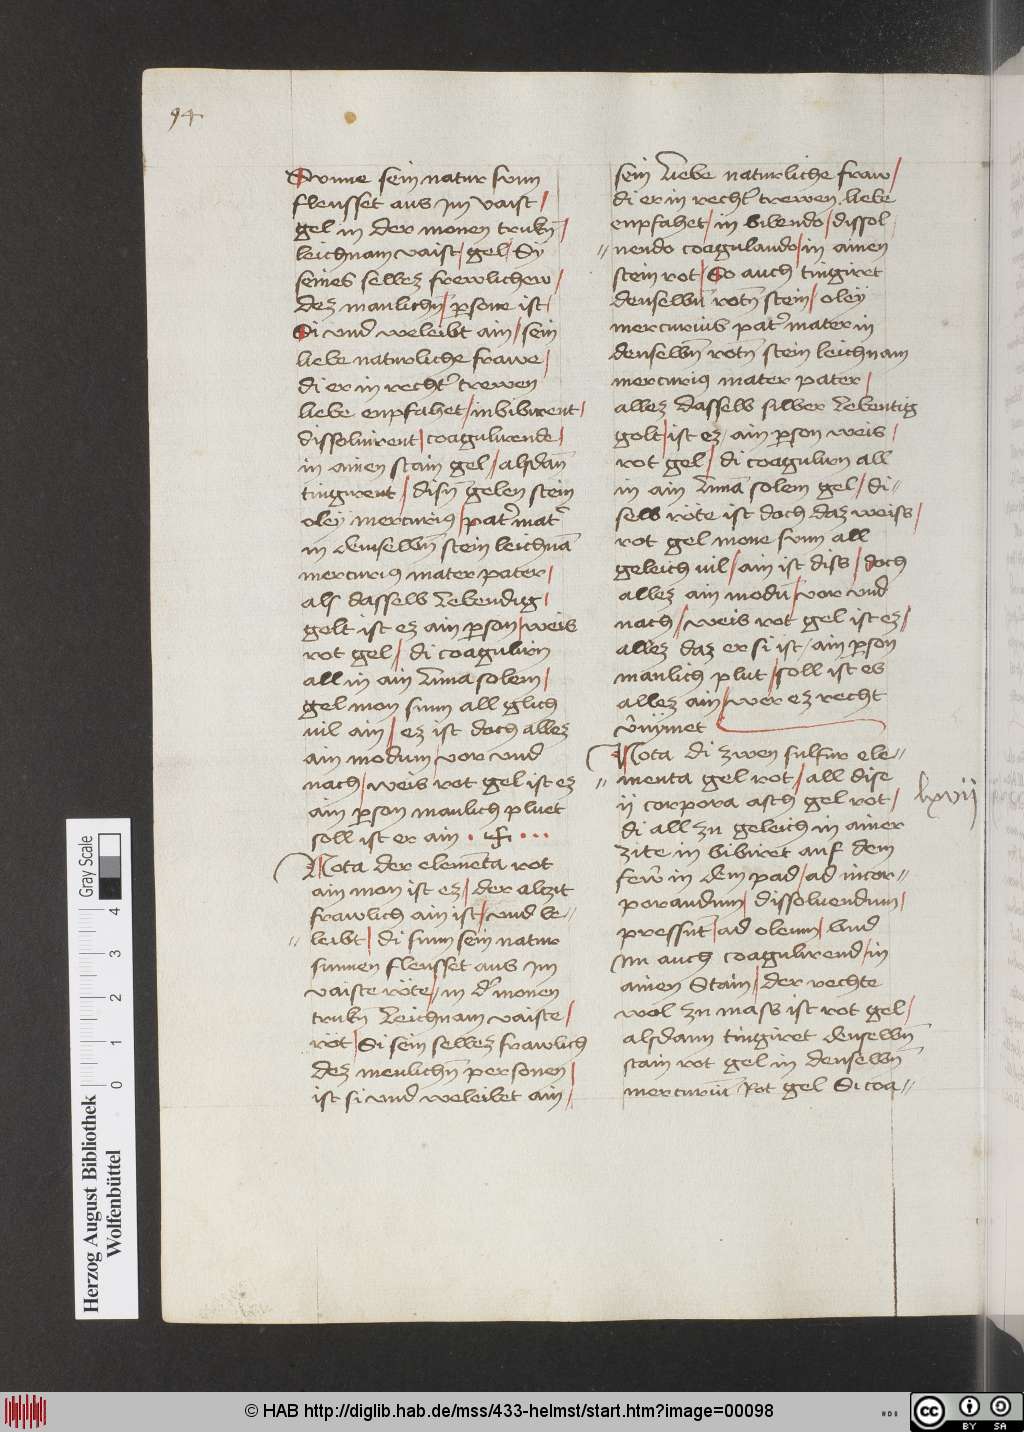 94
Sunne sein natur sunn
fleusset aus Im vaist /
gel in der monen trukn̄ /
leichnam vaist / gel / Si
seines selbez frewlichew /
dez manlichn̄ / psone ist /
Si vnd weleibt ain / sein
liebe naturliche frawe /
di er in recht' trewen
liebe enpfahet / inbiburent /
dissoluirent / coagulirende /
in ainen stain gel // alsdañ
tingirent / disn̄ gelen stein
oley mercurius / pat' mat'
in demselbn̄ stein leichnā
mercurius mater pater /
als dasselb Lebendig /
golt ist ez ain pson / weis
rot gel / di coagulirn
all in ain Linia solem /
gel mon sunn all glich
vil ain / ez ist doch allez
ain modum vor vnd
nach / weis rot gel ist ez
ain pson manlich pluet
soll ist er ain
Nota der elemēta rot
ain mon ist ez / der altzit
frawlich ain ist / vnd be=
leibt / di sunn sein natur
sunnen fleusset aus Im
vaiste röte // in d' monen
trukn̄ Leichnam vaiste /
röt / Si sein selbez frawlich
dez menlichn̄ personen /
ist si vnd weleibet ain /
sein Liebe naturliche fraw /
di er in recht' trewen liebe
enpfahet / in bibendo / dissol
nendo coagulando / in ainen
stein rot / So auch tingiret
denselbn̄ rotn̄ stein / oleÿ
mercurius pat' mater in
denselbn̄ rotn̄ stein leichnam
mercurius mater pater /
allez dasselb silber Lebentig
golt / ist ez / ain pson weis /
rot gel / di coagulirn all
in ain Linia solem gel / di=
selb röte ist doch daz weiss /
rot gel mone sunn all
geleich vil / ain ist diss / doch
allez ain modū / vor vnd
nach / weis rot gel ist ez /
allez daz er si ist / ain pson
manlich plut / soll ist es
allez ain / wer ez recht
v'nÿmet
Nota di zwen sulfur ele=
menta gel rot / all dise
ij corpora asch gel rot /
di all zu geleich in ainer
zite in bibiret auf dem
fewr in dem pad / ad incor=
porandum / dissoluendum /
pressūt / ad oleum / vnd
Im auch coagulirend / in
ainen Stain / der rechte
wol zu mass ist rot gel /
alsdann tingiret denselbn̄
stain rot gel in denselbn̄
mercuriū Rot gel Si coa=
lxvij
Gray Scale
0 1 2 3 4
Herzog August Bibliothek
Wolfenbüttel
© HAB http://diglib.hab.de/mss/433-helmst/start.htm?image=00098
HAB
cc BY SA